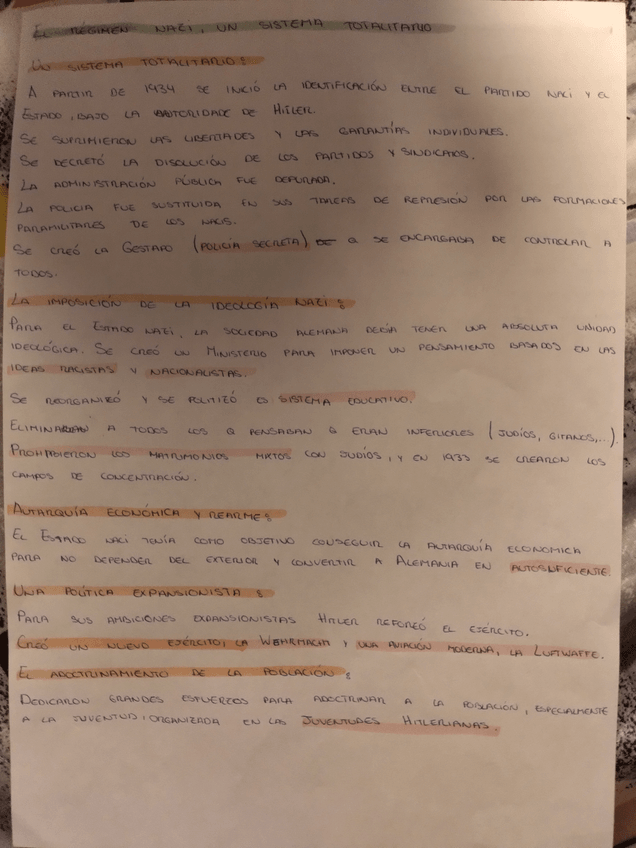 EL RÉGIMEN NAZI, UN SISTEMA TOTALITARIO
UN SISTEMA TOTALITARIO:
A PARTIR DE 1934 SE INICIÓ LA IDENTIFICACIÓN ENTRE EL PARTIDO NAZI Y EL
ESTADO, BAJO LA AUTORIDADE DE HITLER.
SE SUPRIMIERON LAS LIBERTADES Y LAS GARANTÍAS INDIVIDUALES.
SE DECRETÓ LA DISOLUCIÓN DE LOS PARTIDOS Y SINDICATOS.
LA ADMINISTRACIÓN PÚBLICA FUE DEPURADA.
LA POLICIA FUE SUSTITUIDA EN SUS TAREAS DE REPRESIÓN POR LAS FORMACIONES
PARAMILITARES DE LOS NAZIS.
SE CREÓ LA GESTAPO (POLICÍA SECRETA) Q SE ENCARGABA DE CONTROLAR A
TODOS.
LA IMPOSICIÓN DE LA IDEOLOGÍA NAZI:
PARA EL ESTADO NAZI, LA SOCIEDAD ALEMANA DEBÍA TENER UNA ABSOLUTA UNIDAD
IDEOLÓGICA. SE CREÓ UN MINISTERIO PARA IMPONER UN PENSAMIENTO BASADOS EN LAS
IDEAS RACISTAS Y NACIONALISTAS.
SE REORGANIZÓ Y SE POLITIZÓ EL SISTEMA EDUCATIVO.
ELIMINABAN A TODOS LOS Q PENSABAN Q ERAN INFERIORES (JUDÍOS, GITANOS,...).
PROHIBIERON LOS MATRIMONIOS MIXTOS CON JUDÍOS, Y EN 1933 SE CREARON LOS
CAMPOS DE CONCENTRACIÓN.
AUTARQUÍA ECONÓMICA Y REARME:
EL ESTADO NAZI TENÍA COMO OBJETIVO CONSEGUIR LA AUTARQUÍA ECONOMICA
PARA NO DEPENDER DEL EXTERIOR Y CONVERTIR A ALEMANIA EN AUTOSUFICIENTE.
UNA POLÍTICA EXPANSIONISTA:
PARA SUS AMBICIONES EXPANSIONISTAS HITLER REFORZÓ EL EJÉRCITO.
CREÓ UN NUEVO EJÉRCITO, LA WEHRMACHT Y UNA AVIACIÓN MODERNA, LA LUFTWAFFE.
EL ADOCTRINAMIENTO DE LA POBLACIÓN:
DEDICARON GRANDES ESFUERZOS PARA ADOCTRINAR A LA POBLACIÓN, ESPECIALMENTE
A LA JUVENTUD, ORGANIZADA EN LAS JUVENTUDES HITLERIANAS.